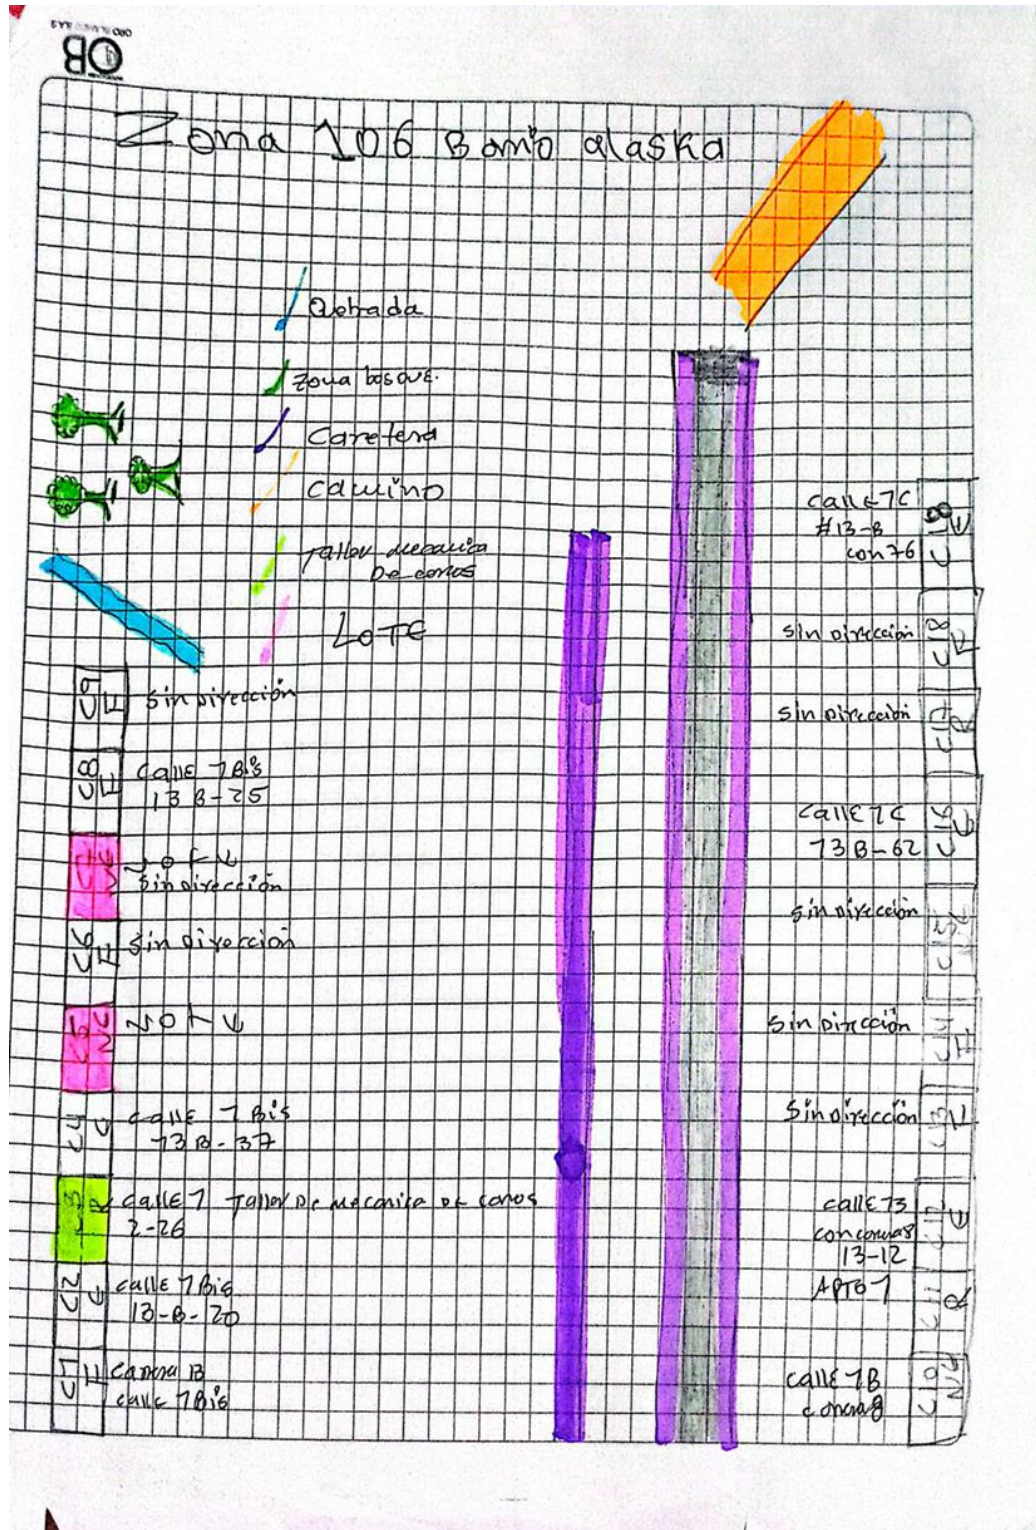 OB
Zona 106 Barrio alaska
Qebrada
Zona bosque.
Caretera
Camino
Taller mecanica
De carros
LOTE
C9 E Sin Dirección
C8 E Calle 7 Bis
13 B-25
LOTE
Sin Dirección
C6 E Sin Dirección
C5 NC LOTE
C4 C Calle 7 Bis
13 B-37
C3 R Calle 7 Taller De Mecanica De carros
2-26
C2 C Calle 7 Bis
13-B-20
C1 E Carrera B
calle 7 Bis
Calle 7C
#13-B
con 76
Sin Dirección
C18
Sin Dirección
C17 R
Calle 7C
13B-62
C16
Sin Dirección
C15
Sin Dirección
C14 E
Sin Dirección
C13
Calle 13
con carrera 8
13-12
C12
APTO 1
C11 R
Calle 7B
carrera 8
C10